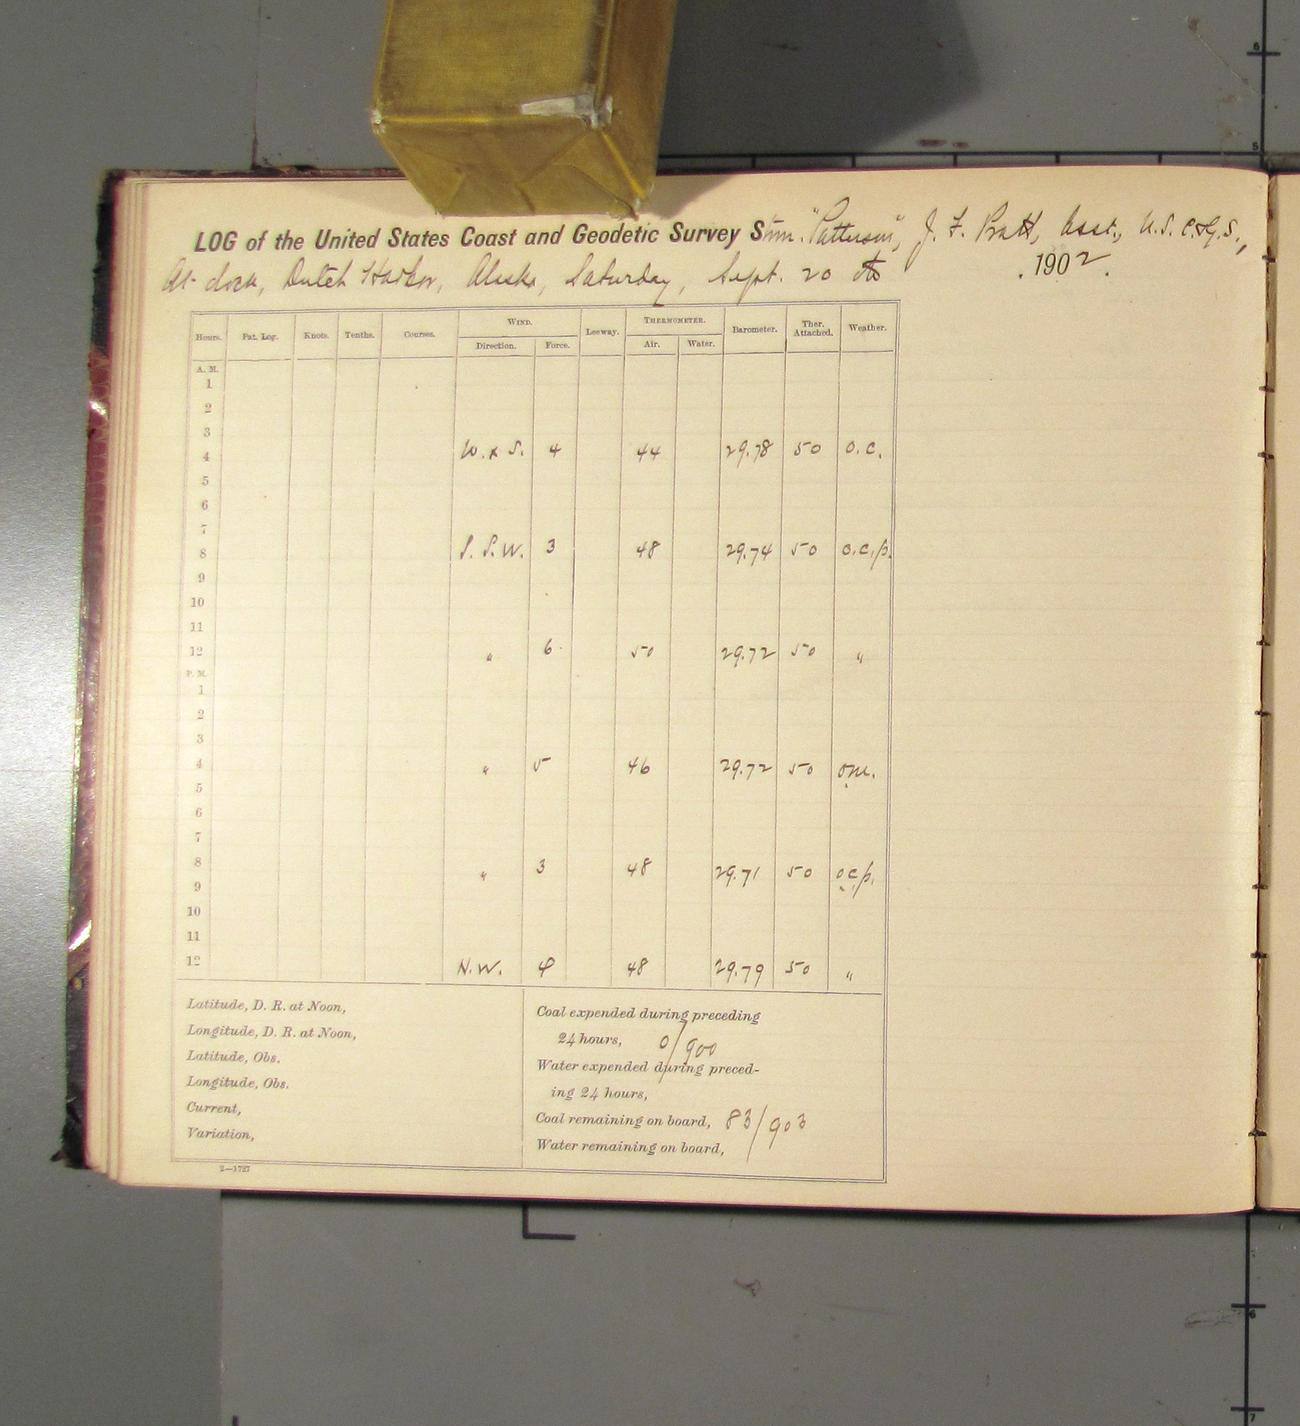 LOG of the United States Coast and Geodetic Survey Stmr. "Patterson", J. F. Pratt, Asst., U.S.C.&G.S.,
At dock, Dutch Harbor, Alaska, Saturday, Sept. 20th 1902.
Hours. Pat. Log. Knots. Tenths. Courses. WIND. Leeway. THERMOMETER. Barometer. Ther. Attached. Weather.
Direction. Force. Air. Water.
A. M.
1
2
3
4 W. x S. 4 44 29.78 50 O.C.
5
6
7
8 S. S. W. 3 48 29.74 50 O.C.p.
9
10
11
12 " 6 50 29.72 50 "
P. M.
1
2
3
4 " 5 46 29.72 50 om.
5
6
7
8 " 3 48 29.71 50 ocp.
9
10
11
12 N.W. 4 48 29.79 50 "
Latitude, D. R. at Noon,
Longitude, D. R. at Noon,
Latitude, Obs.
Longitude, Obs.
Current,
Variation,
Coal expended during preceding
24 hours, 0/900
Water expended during preced-
ing 24 hours,
Coal remaining on board, 83/903
Water remaining on board,
2—1727
5
6
6
7